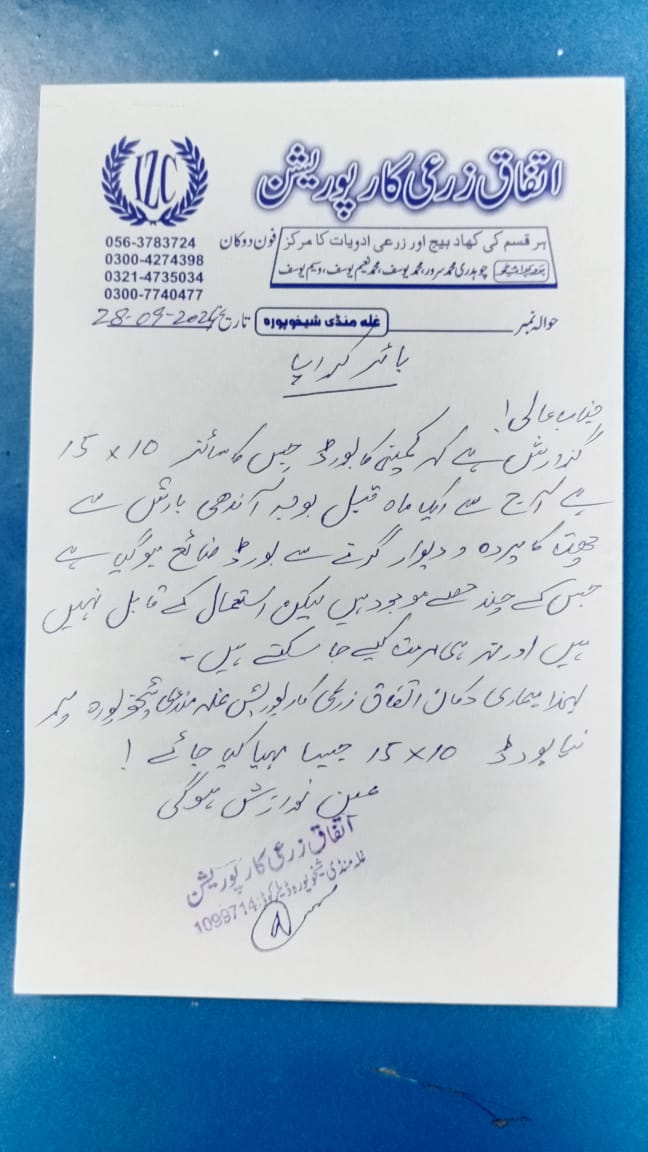 اتفاق زرعی کارپوریشن
IZC
ہر قسم کی کھاد بیج اور زرعی ادویات کا مرکز
فون دوکان
چوہدری محمد سرور، محمد یوسف، محمد نعیم یوسف، وسیم یوسف
056-3783724
0300-4274398
0321-4735034
0300-7740477
حوالہ نمبر
غلہ منڈی شیخوپورہ
تاریخ 28-09-2024
بائر کراپ
جناب عالی!
گذارش ہے کہ کمپنی کا بورڈ جس کا سائز 10 × 15
ہے آج سے ایک ماہ قبل بوجہ آندھی بارش سے
چھت کا پردہ و دیوار گرنے سے بورڈ ضائع ہوگیا ہے
جس کے چند حصے موجود ہیں لیکن استعمال کے قابل نہیں
ہیں اور نہ ہی مرمت کیے جا سکتے ہیں۔
لہذا ہماری دکان اتفاق زرعی کارپوریشن غلہ منڈی شیخوپورہ پر
نیا بورڈ 10 × 15 جیسا مہیا کیا جائے!
عین نوازش ہوگی
اتفاق زرعی کارپوریشن
غلہ منڈی شیخوپورہ ڈیلر کوڈ: 1099714